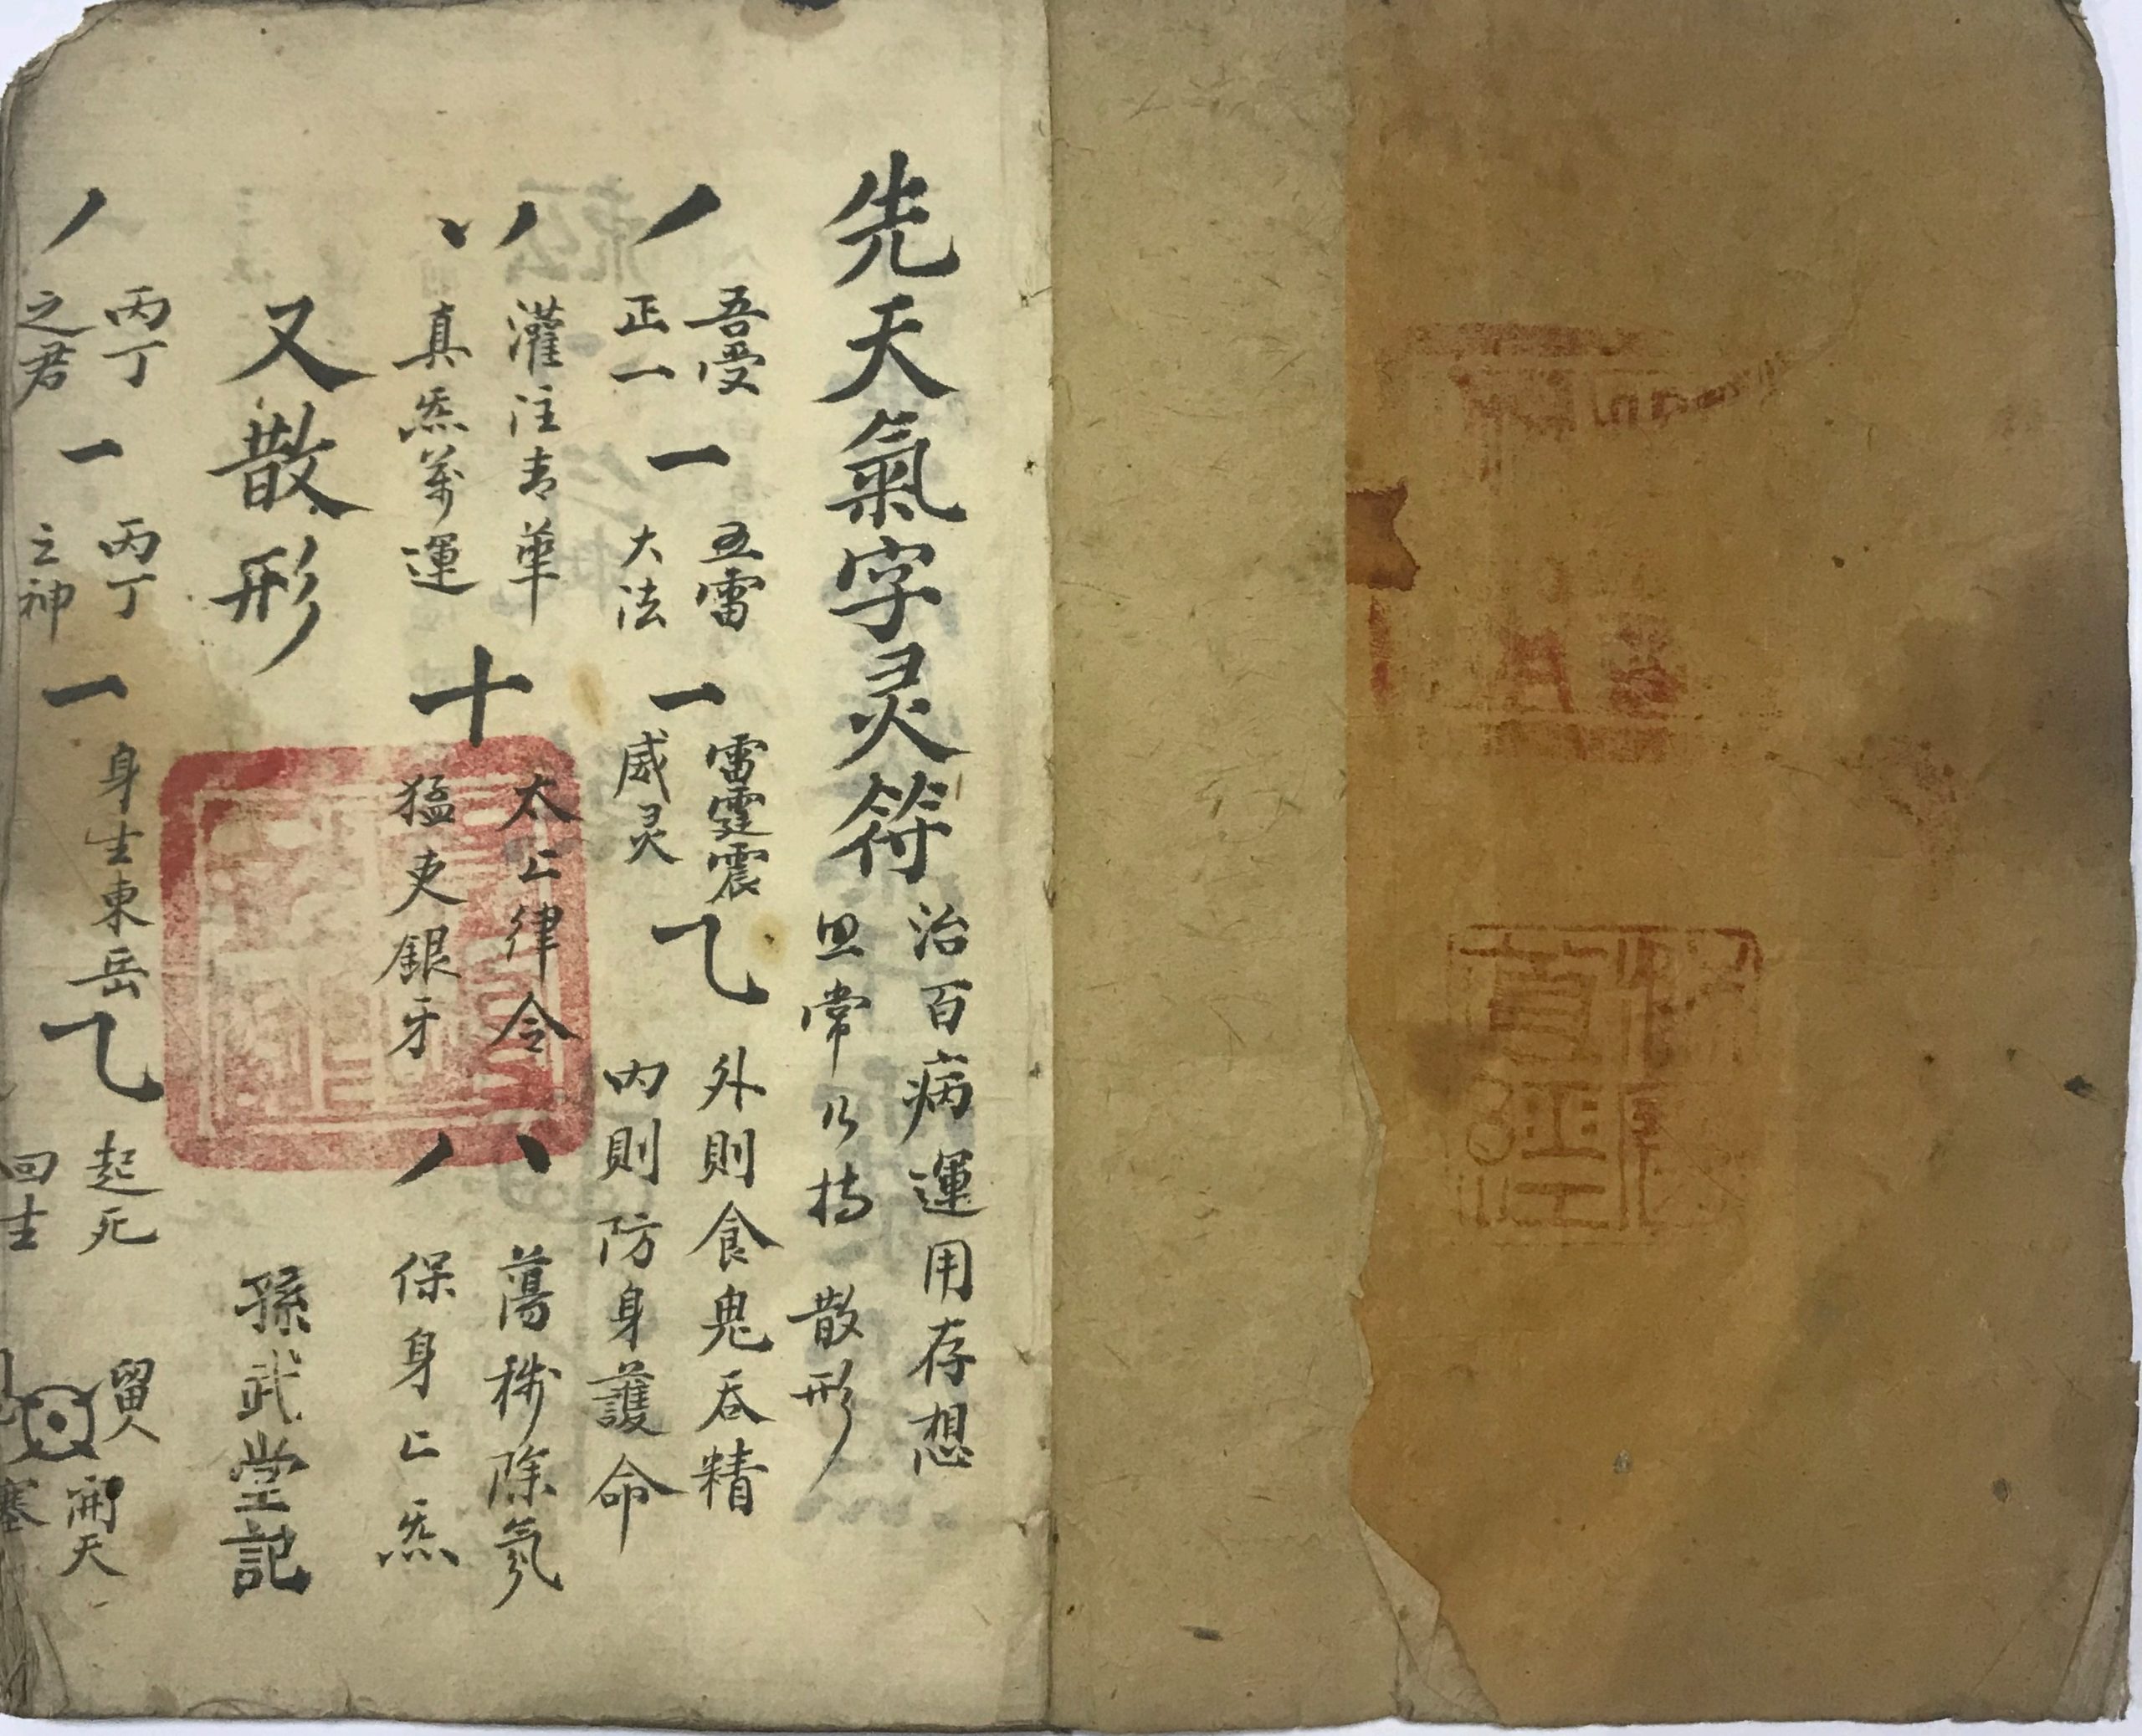 先天氣字灵符
治百病運用存想
常乃持散形
丿
吾受
正一
一
五雷
大法
一
雷霆震
威灵
乁
外則食鬼吞精
内則防身護命
灌注青華
真炁萬運
十
太上律令
猛吏銀牙
八
蕩穢除氛
保身上炁
又散形
孫武堂記
丿
丙丁
之君
一
丙丁
之神
一
身生東岳
乁
起死
回生
開天